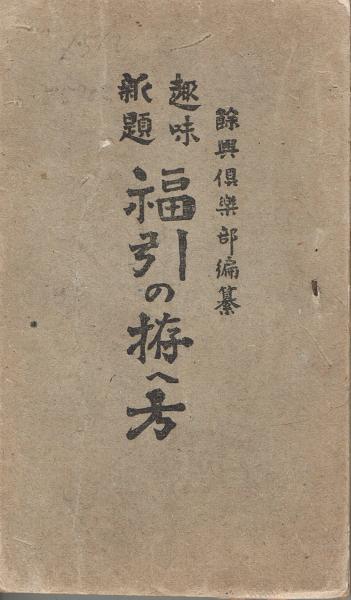 餘興倶楽部編纂
趣味
新題
福引の拵へ方